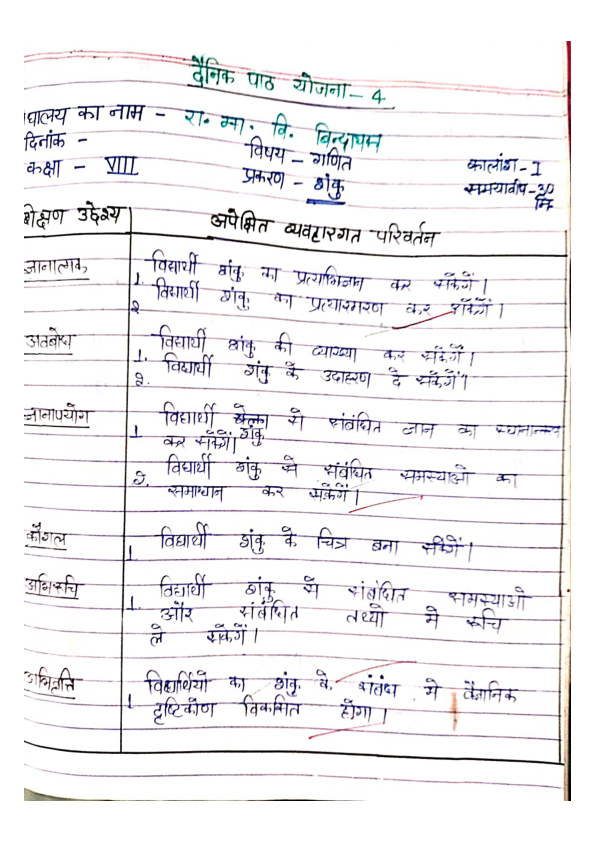 दैनिक पाठ योजना - 4
घालय का नाम - रा. मा. वि. बिन्दायम
दिनांक -
विषय - गणित
कालांश - I
कक्षा - VIII
प्रकरण - शंकु
समयावधि - 30 मि
शैक्षण उद्देश्य
अपेक्षित व्यवहारगत परिवर्तन
ज्ञानात्मक
1. विद्यार्थी शंकु का प्रत्याभिज्ञान कर सकेंगें।
2. विद्यार्थी शंकु का प्रत्यास्मरण कर सकेंगें।
अवबोध
1. विद्यार्थी शंकु की व्याख्या कर सकेंगें।
2. विद्यार्थी शंकु के उदाहरण दे सकेंगें।
ज्ञानापयोग
1. विद्यार्थी शंकु से संबंधित ज्ञान का
कर सकेंगें।
2. विद्यार्थी शंकु से संबंधित समस्याओ का
समाधान कर सकेंगें।
कौशल
1. विद्यार्थी शंकु के चित्र बना सकेंगें।
अभिरूचि
1. विद्यार्थी शंकु से संबंधित समस्याओ
और संबंधित तथ्यो मे रूचि
ले सकेंगें।
अभिवृत्ति
1. विद्यार्थियो का शंकु के संबंध मे वैज्ञानिक
दृष्टिकोण विकसित होगा।